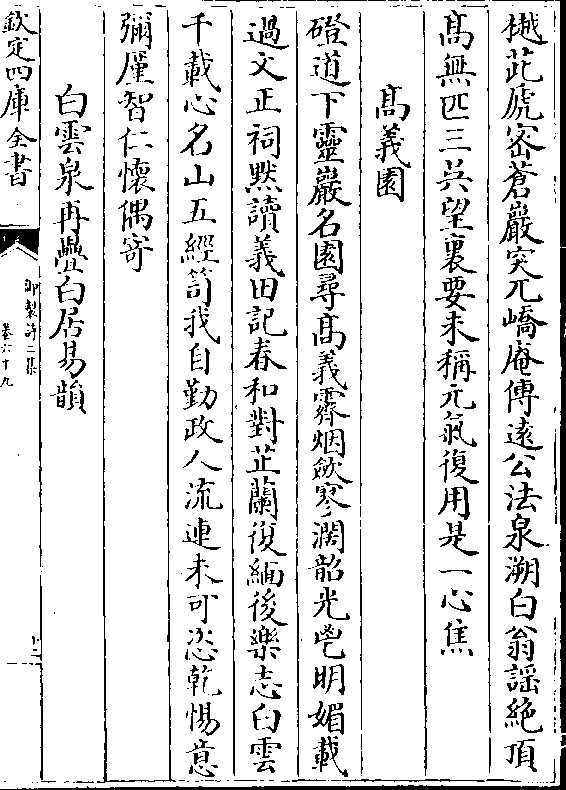 樾茈虎宻蒼巖突兀嶠庵傳逺公法泉溯白翁謡絶頂
髙無匹三吳望裏要未稱元氣復用是一心焦
髙義園
磴道下靈巖名園尋髙義霽烟斂寥濶韶光㫰明媚載
過文正祠黙讀義田記春和對芷蘭復緬後樂志白雲
千載心名山五經笥我自勤政人流連未可恣乾惕意
彌厪智仁懷偶寄
白雲泉再疊白居易韻
欽定四庫全書
御製詩二集
卷六十九